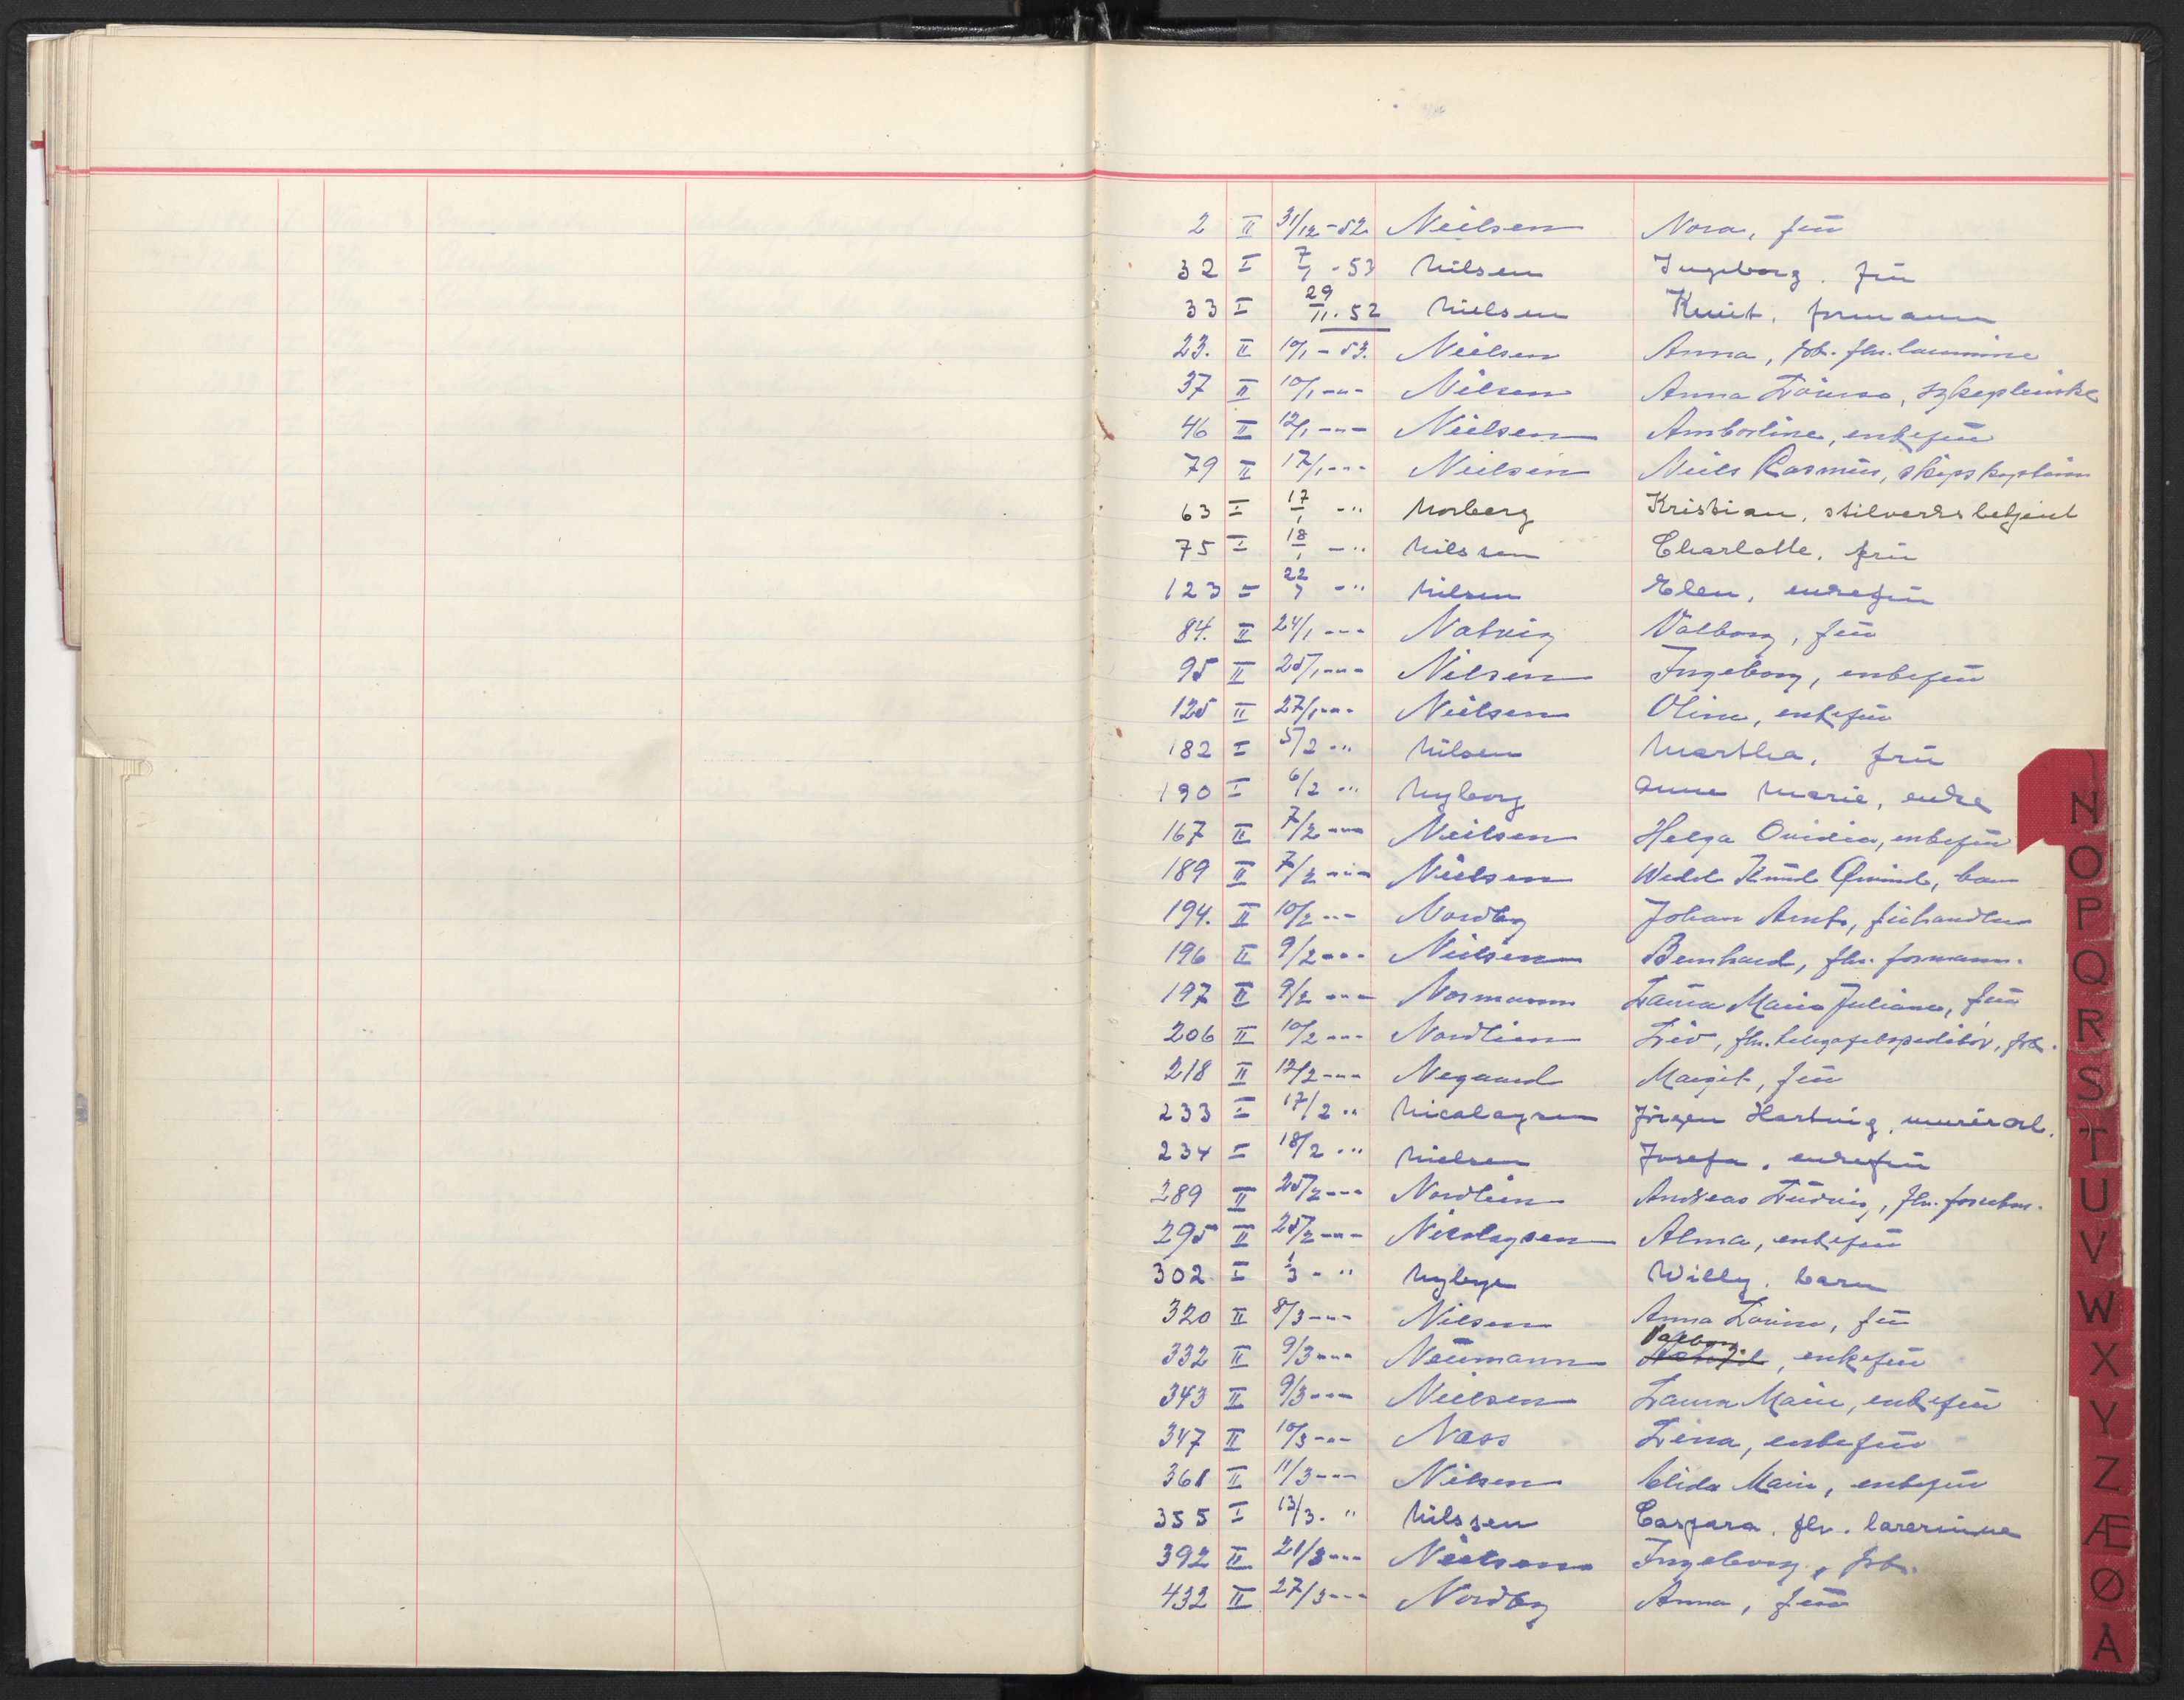 2 II 31/12-52 Nielsen Nora, frü
32 I 7/1 -53 Nilsen Ingeborg. frü
33 I 29/11. 52 Nielsen Knüt. formann
23. II 10/1 - 53. Nielsen Anna, frk. fhv.
37 II 10/1 -"- Nilsen Anna Lovise, sykepleiske
46 II 12/1 -"- Nielsen Amborline, enkefrü
79 II 17/1 -"- Nielsen Niels Rasmüs, skipskaptein
63 I 17/1 -" Norberg Kristian, stilverksbetjent
75 I 18/1 -" Nilssen Charlotte. frü
123 I 22/1 -" Nilsen Elen, enkefrü
84. II 24/1 -"- Natvig Valborg, frü
95 II 25/1 -"- Nilsen Ingeborg, enkefrü
125 II 27/1 -"- Nielsen Oline, enkefrü
182 I 5/2 -" Nilsen Martha, frü
190 I 6/2 -" Nyborg Anne Marie, enke
167 II 7/2 -"- Neilsen Helga Ovidia, enkefrü
189 II 7/2 -"- Nielsen Knüd barn
194. II 10/2 -"- Nordby Johan
196 II 9/2 -"- Nielsen Bernhard, fhv. formann.
197 II 9/2 -"- Normann Laüra Marie Juliane, frü
206 II 10/2 -"- Nordlien Liv, fhv. telegrafekspeditör, frk.
218 II 12/2 -"- Negaard Margit, frü
233 I 17/2 -" Nicolaysen Jörgen Hartvig, mürerarb.
234 I 18/2 -" Nielsen Josefa, enkefrü
289 II 25/2 -"- Nordlien Andreas Lüdvig, fhv.
295 II 25/2 -"- Nicolaysen Alma, enkefrü
302 I 1/3 - " Nybye Willy. barn
320 II 8/3 -"- Nilsen Anna Lovise, frü
332 II 9/3 -"- Neümann Valborg, enkefrü
343 II 9/3 -"- Nielsen Laura Marie, enkefrü
347 II 10/3 -"- Næss Lina, enkefrü
361 II 11/3 -"- Nilsen Elida Marie, enkefrü
355 I 13/3. " Nilssen Caspara. fhv. lærerinne
392 II 21/3 -"- Nielsen Ingeborg, frk.
432 II 27/3 -"- Nordby Anna, frü
N
O
P
Q
R
S
T
U
V
W
X
Y
Z
Æ
Ø
Å